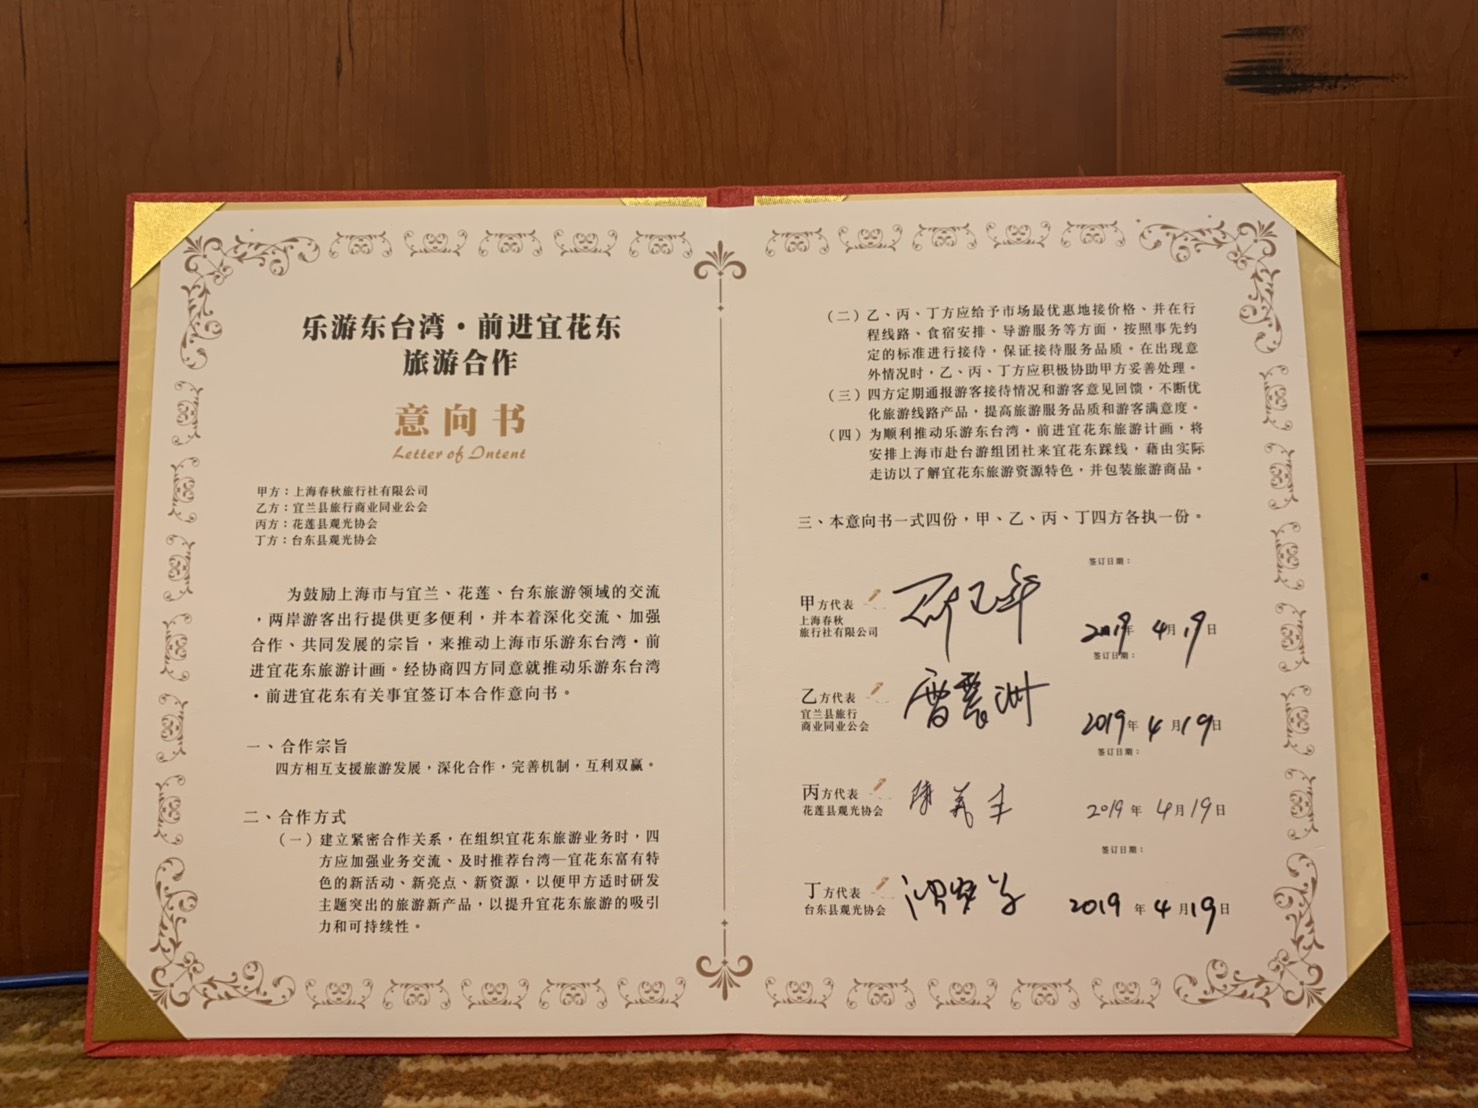 乐游东台湾·前进宜花东
旅游合作
意向书
Letter of Intent
甲方：上海春秋旅行社有限公司
乙方：宜兰县旅行商业同业公会
丙方：花莲县观光协会
丁方：台东县观光协会
为鼓励上海市与宜兰、花莲、台东旅游领域的交流
，两岸游客出行提供更多便利，并本着深化交流、加强
合作、共同发展的宗旨，来推动上海市乐游东台湾·前
进宜花东旅游计画。经协商四方同意就推动乐游东台湾
·前进宜花东有关事宜签订本合作意向书。
一、合作宗旨
四方相互支援旅游发展，深化合作，完善机制，互利双赢。
二、合作方式
（一）建立紧密合作关系，在组织宜花东旅游业务时，四
方应加强业务交流、及时推荐台湾—宜花东富有特
色的新活动、新亮点、新资源，以便甲方适时研发
主题突出的旅游新产品，以提升宜花东旅游的吸引
力和可持续性。
（二）乙、丙、丁方应给予市场最优惠地接价格、并在行
程线路、食宿安排、导游服务等方面，按照事先约
定的标准进行接待，保证接待服务品质。在出现意
外情况时，乙、丙、丁方应积极协助甲方妥善处理。
（三）四方定期通报游客接待情况和游客意见回馈，不断优
化旅游线路产品，提高旅游服务品质和游客满意度。
（四）为顺利推动乐游东台湾·前进宜花东旅游计画，将
安排上海市赴台游组团社来宜花东踩线，藉由实际
走访以了解宜花东旅游资源特色，并包装旅游商品。
三、本意向书一式四份，甲、乙、丙、丁四方各执一份。
签订日期：
甲方代表
上海春秋
旅行社有限公司
2019年 4月 19日
签订日期：
乙方代表
宜兰县旅行
商业同业公会
2019年 4月19日
签订日期：
丙方代表
花莲县观光协会
2019年 4月19日
签订日期：
丁方代表
台东县观光协会
2019年 4月19日